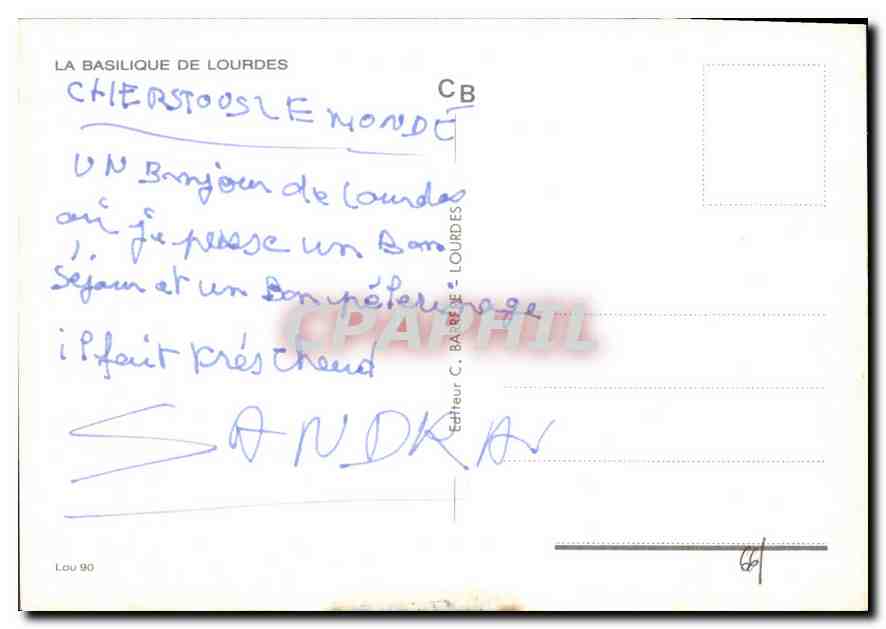 LA BASILIQUE DE LOURDES
CHERSTOUSLE MONDE
UN Bonjour de Lourdes
où je passe un Bon
Séjour et un Bon pélerinage
il fait très chaud
SANDRA
CB
Editeur C. BARRERE - LOURDES
CPAPHIL
Lou 90
66/